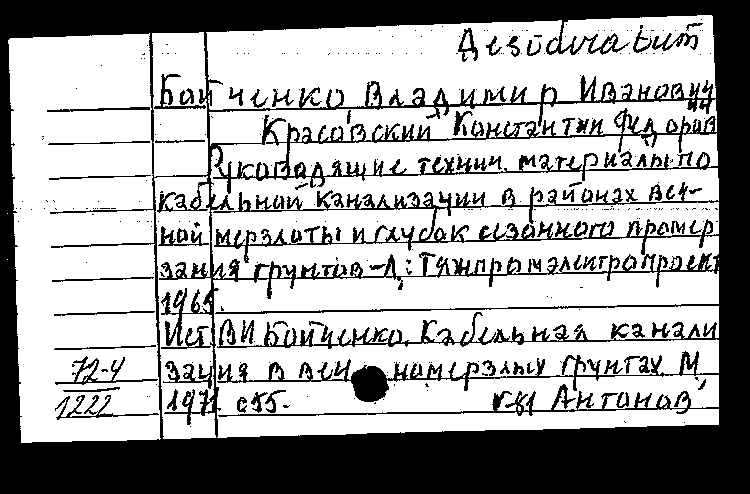 Desideratum
Бойченко, Владимир Иванович
Красовский Константин Федоров
Руководящие технич. материалы по
кабельной канализации в районах веч-
ной мерзлоты и глубок сезонного промер
зания грунтов - Л.: Тяжпромэлектропроект
1965.
Ист. В И Бойченко. Кабельная канали
зация в веч номерзлых грунтах. М,
72-4
1222
1971 с 55.
Антонов